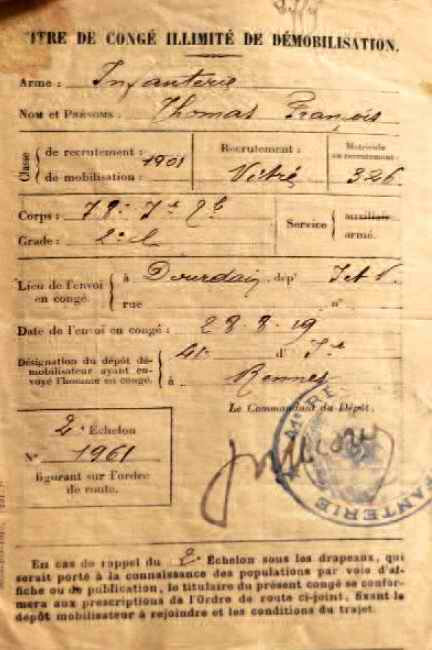 TITRE DE CONGÉ ILLIMITÉ DE DÉMOBILISATION.
Arme : Infanterie
NOM ET PRÉNOMS : Thomas François
Classe
de recrutement : 1901
de mobilisation :
Recrutement :
Vitré
Matricule
au recrutement :
326
Corps : 78e
Grade : 2e cl
Service
auxiliaire
armé.
Lieu de l'envoi
en congé.
à Dourdain, dépt I et V.
rue n°
Date de l'envoi en congé : 28-8-19
Désignation du dépôt dé-
mobilisateur ayant en-
voyé l'homme en congé.
41e d' Ie
à Rennes
Le Commandant du Dépôt,
2e Échelon
N° 1961
figurant sur l'ordre
de route.
INFANTERIE
En cas de rappel du 2e Échelon sous les drapeaux, qui
serait porté à la connaissance des populations par voie d'af-
fiche ou de publication, le titulaire du présent congé se confor-
mera aux prescriptions de l'Ordre de route ci-joint, fixant le
dépôt mobilisateur à rejoindre et les conditions du trajet.